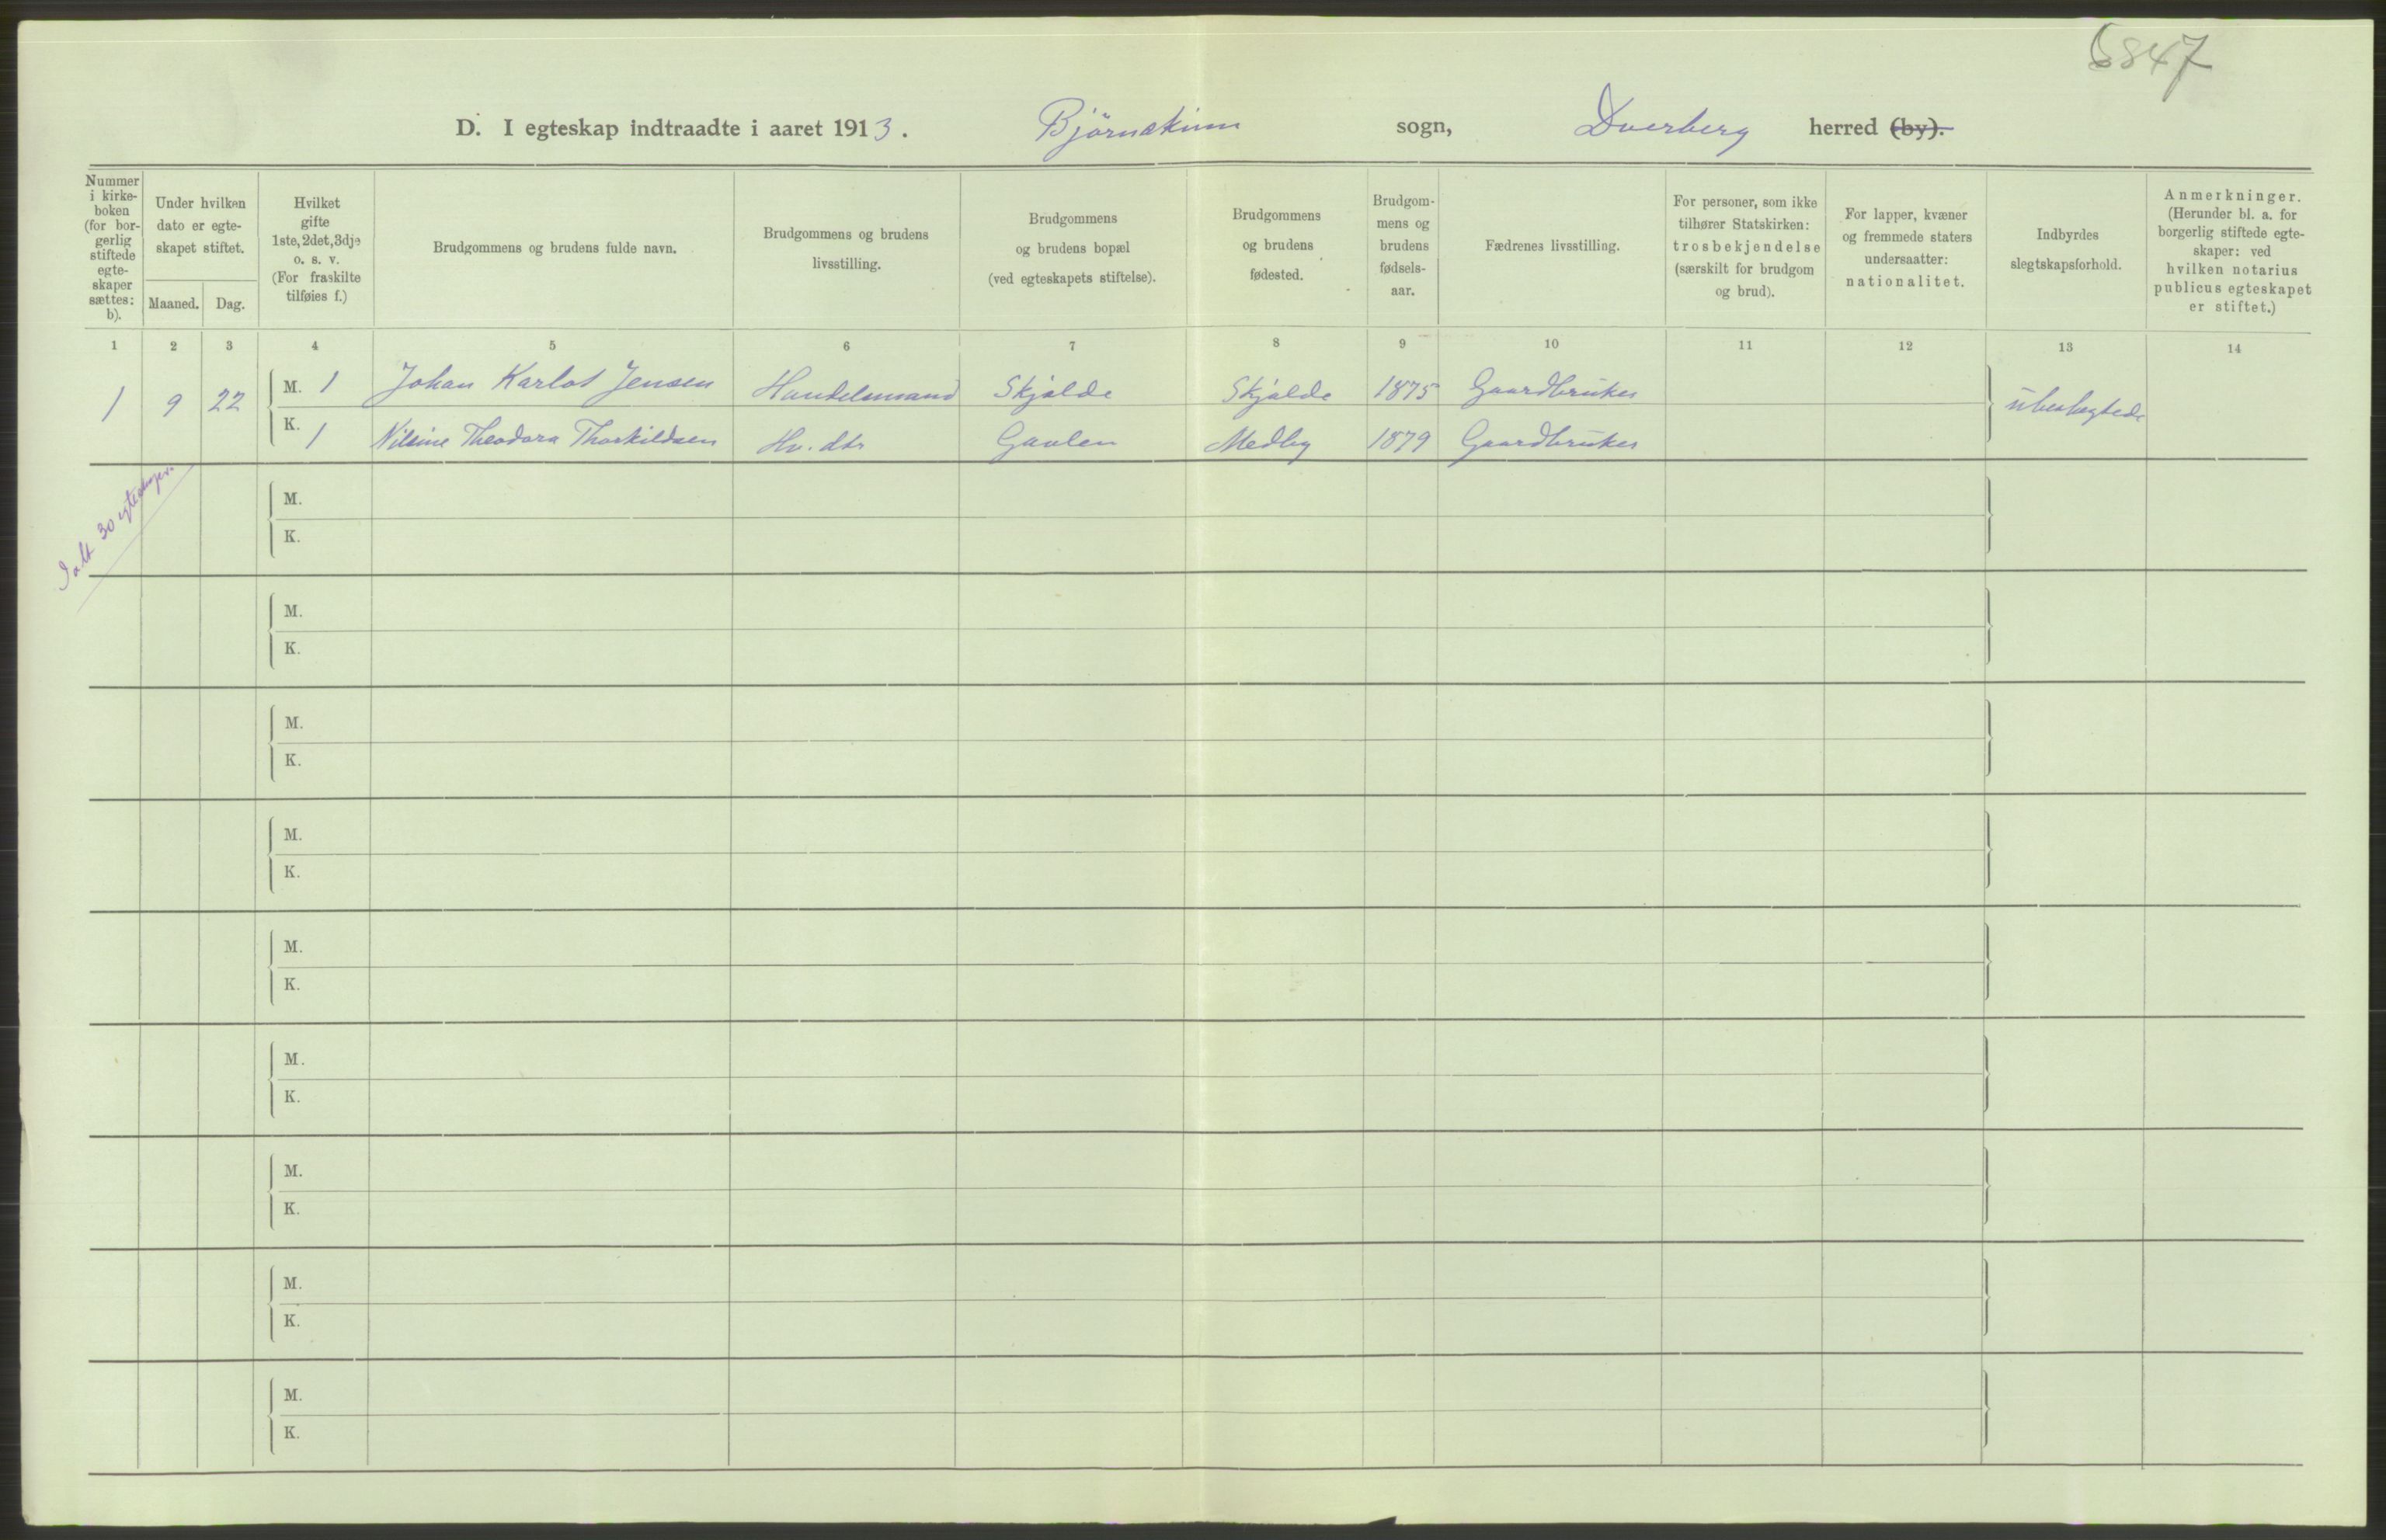 6847
D. I egteskap indtraadte i aaret 1913. Björnskinn sogn, Dverberg herred (by).
Nummer i kirke-boken (for bor-gerlig stiftede egte-skaper sættes: b).
Under hvilken dato er egte-skapet stiftet.
Maaned. Dag.
Hvilket gifte 1ste, 2det, 3dje o. s. v. (For fraskilte tilføies f.)
Brudgommens og brudens fulde navn.
Brudgommens og brudens livsstilling.
Brudgommens og brudens bopæl (ved egteskapets stiftelse).
Brudgommens og brudens fødested.
Brudgom-mens og brudens fødsels-aar.
Fædrenes livsstilling.
For personer, som ikke tilhører Statskirken: trosbekjendelse (særskilt for brudgom og brud).
For lapper, kvæner og fremmede staters undersaatter: nationalitet.
Indbyrdes slegtskapsforhold.
Anmerkninger. (Herunder bl. a. for borgerlig stiftede egte-skaper: ved hvilken notarius publicus egteskapet er stiftet.)
1 2 3 4 5 6 7 8 9 10 11 12 13 14
1 9 22 M. 1 Johan Karlot Jensen Handelsmand Skjolde Skjolde 1875 Gaardbruker ubeslegtede
K. 1 Nilsine Theodora Thorkildsen Hv. dtr Gavlen Medby 1879 Gaardbruker
Ialt 30 egtevigsler.
M.
K.
M.
K.
M.
K.
M.
K.
M.
K.
M.
K.
M.
K.
M.
K.
M.
K.